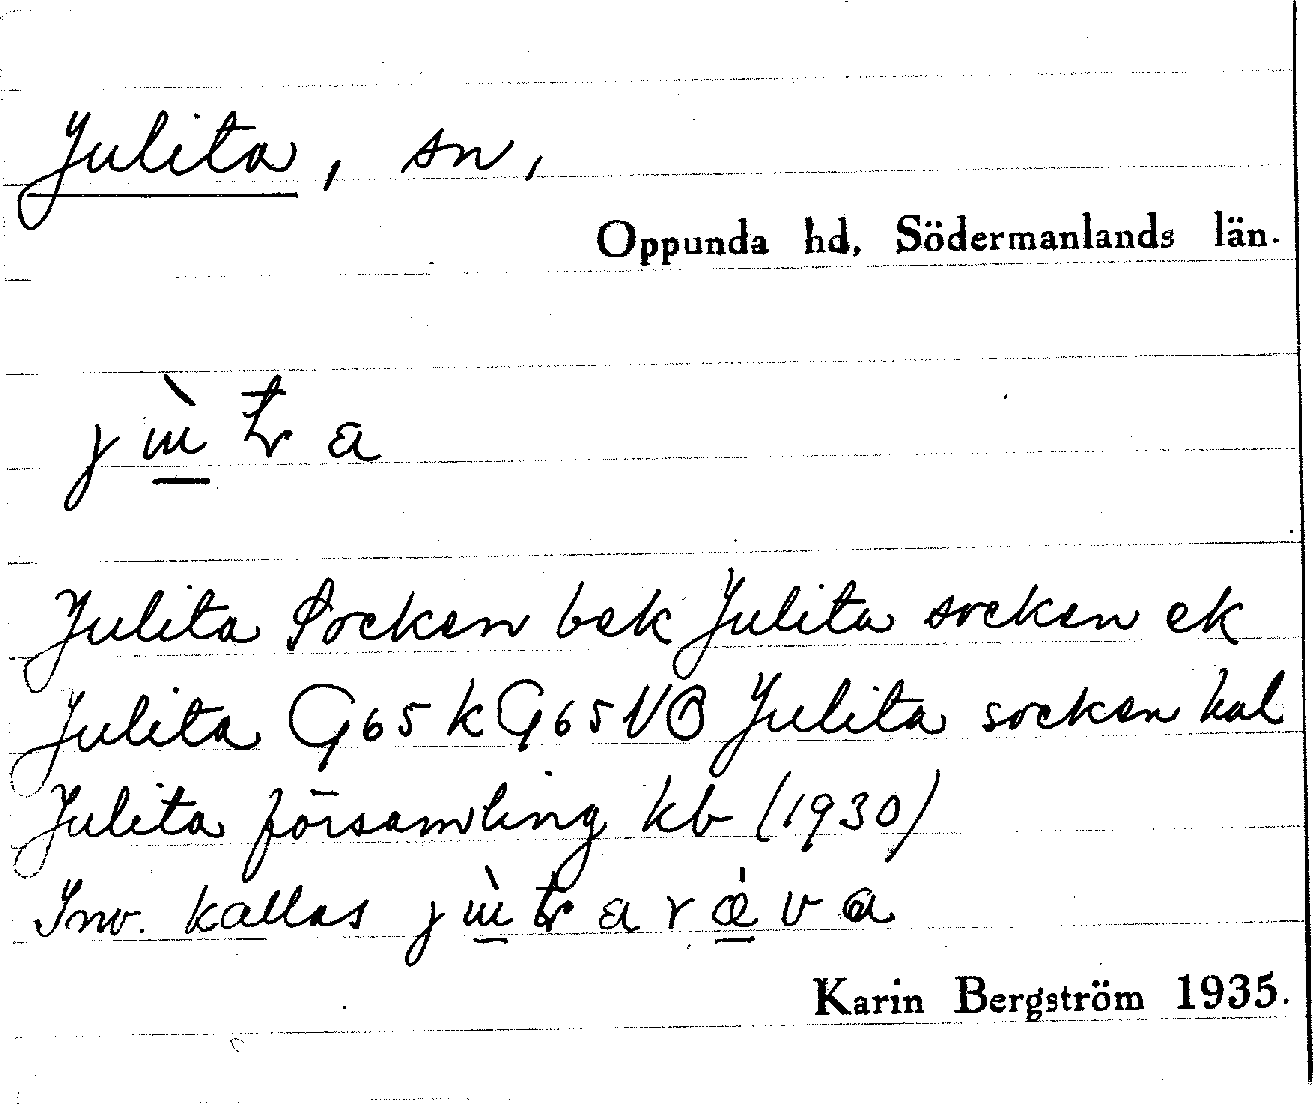 Julita, sn,
Oppunda hd, Södermanlands län.
Julita Socken bek Julita socken ek
Julita G65 k G65 NO Julita socken hal
Julita församling kb (1930)
Inv. kallas
Karin Bergström 1935.